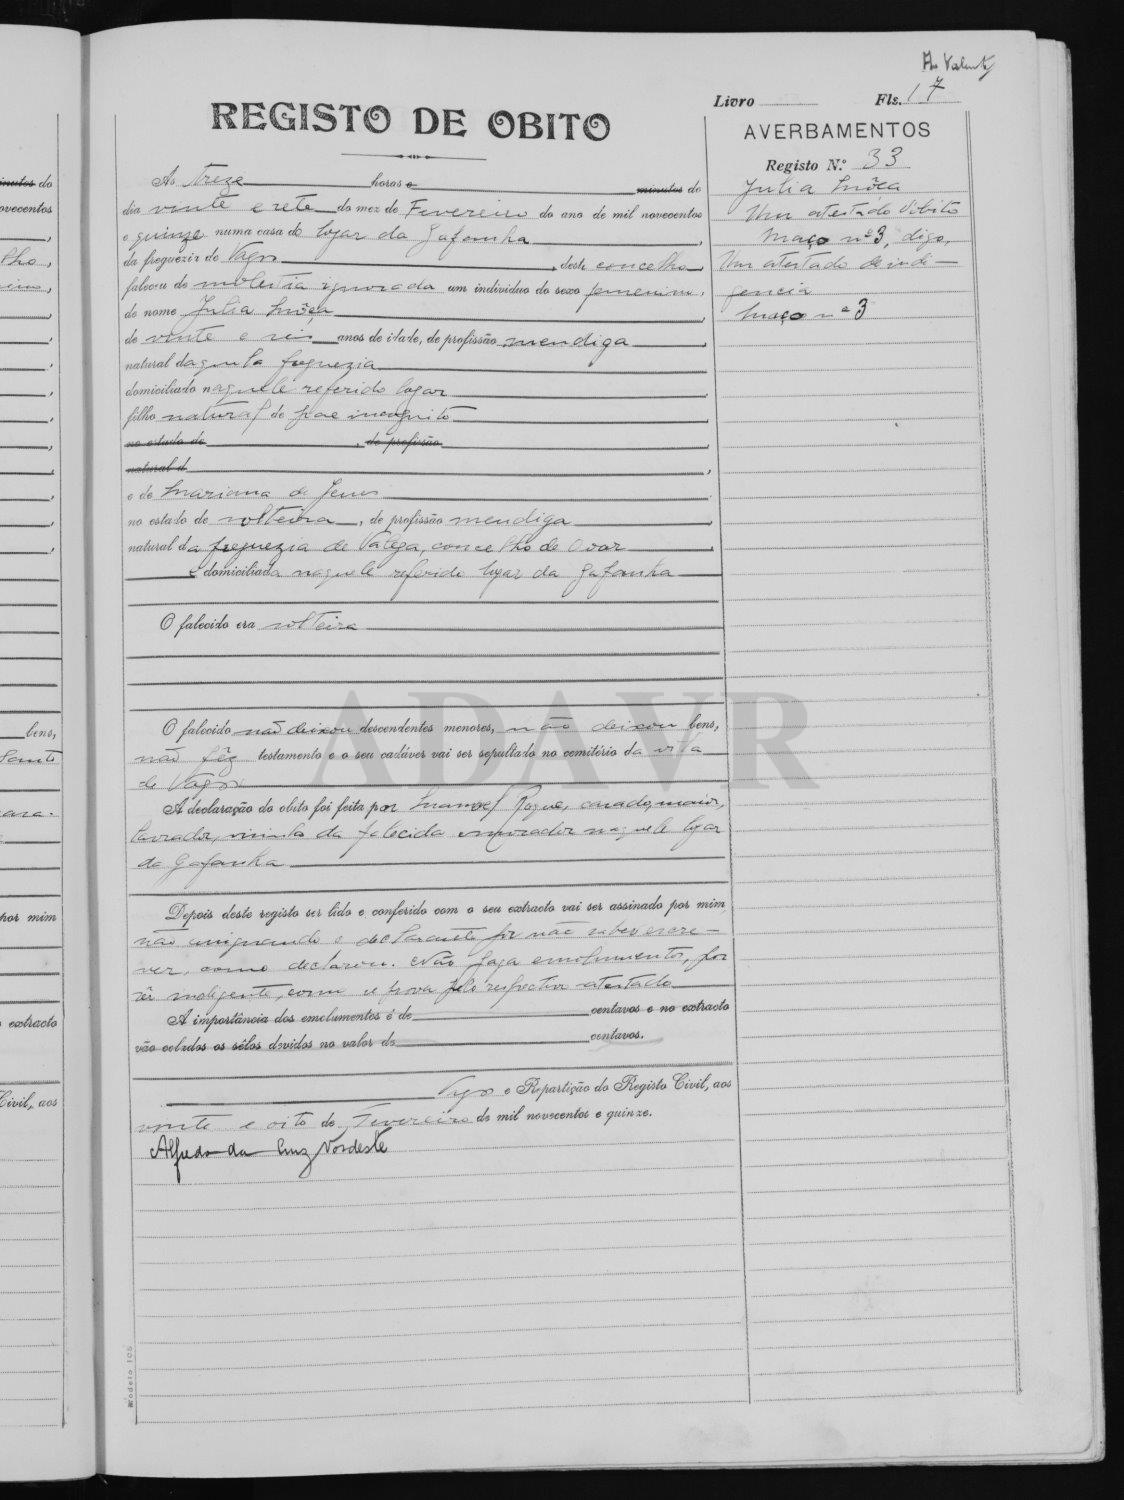 Livro Fls. 17
REGISTO DE OBITO
AVERBAMENTOS
Registo N.º 33
Julia
Um atestado d'óbito
Maço nº 3, digo,
Um atestado de indi-
gencia
Maço nº 3
As Treze horas e minutos do
dia vinte e sete do mez de Fevereiro do ano de mil novecentos
e quinze numa casa do logar da Gafanha,
da freguezia de Vagos, deste concelho,
faleceu de molestia ignorada um individuo do sexo feminino,
de nome Julia
de vinte e seis anos de idade, de profissão mendiga,
natural daquela freguezia
domiciliado naquele referido logar
filho natural de pae incognito
no estado de , de profissão ,
natural d ,
e de Mariana de Jesus
no estado de solteira, de profissão mendiga,
natural da freguezia de Valega, concelho de Ovar
e domiciliada naquele referido logar da Gafanha
O falecido era solteira
O falecido não deixou descendentes menores, não deixou bens,
não fêz testamento e o seu cadáver vai ser sepultado no cemitério da vila
de Vagos
A declaração do obito foi feita por Manoel Roque, casado, maior,
lavrador, visinho da falecida e morador naquele logar
da Gafanha
Depois deste registo ser lido e conferido com o seu extracto vai ser assinado por mim
não assignando o declarante por não saber escre-
ver, como declarou. Não paga emolumentos, por
sêr indigente, como se prova pelo respectivo atestado
A importância dos emolumentos é de centavos e no extracto
vão colados os sêlos devidos no valor de centavos.
Vagos e Repartição do Registo Civil, aos
vinte e oito de Fevereiro de mil novecentos e quinze.
Alfredo da Cruz Nordeste
Modelo 105
ADAVR